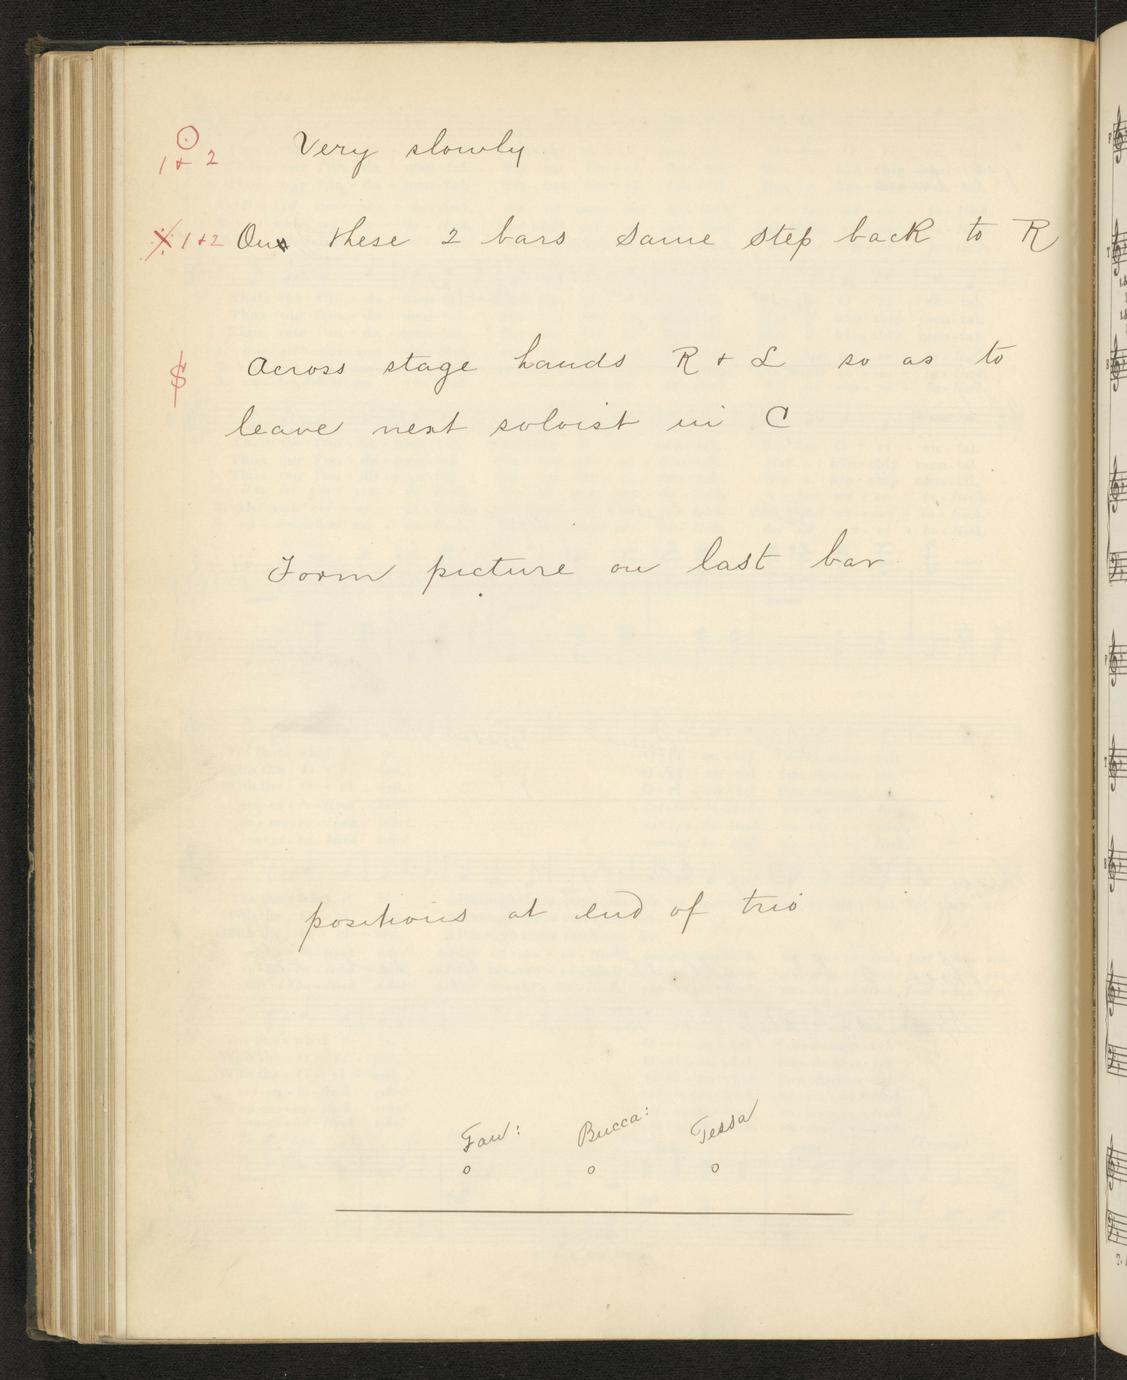 1 + 2 Very slowly
1+2 On these 2 bars same step back to R
$ Across stage hands R + L so as to
leave next soloist in C
Form picture on last bar
positions at end of trio
Bucca: Tessa